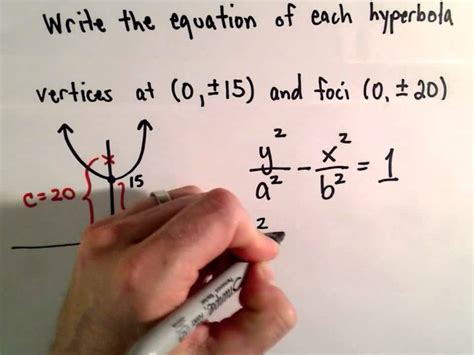 Write the equation of each hyperbola
vertices at (0,±15) and foci (0,±20)
y²/a² - x²/b² = 1
c=20
15
2